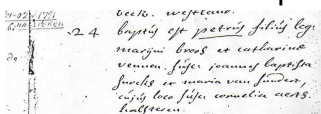 24-02-1791
HALSTEREN
beek. westlant.
24 baptús est petrús filiús leg.
marijni broos et catharinæ
vennen. súsc. joannes baptista
et maria van fúndert,
cújús loco súsc. cornelia aerts.
halsteren.
de